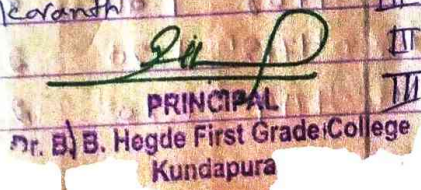 karanth
III
III
PRINCIPAL
Dr. B. B. Hegde First Grade College
Kundapura